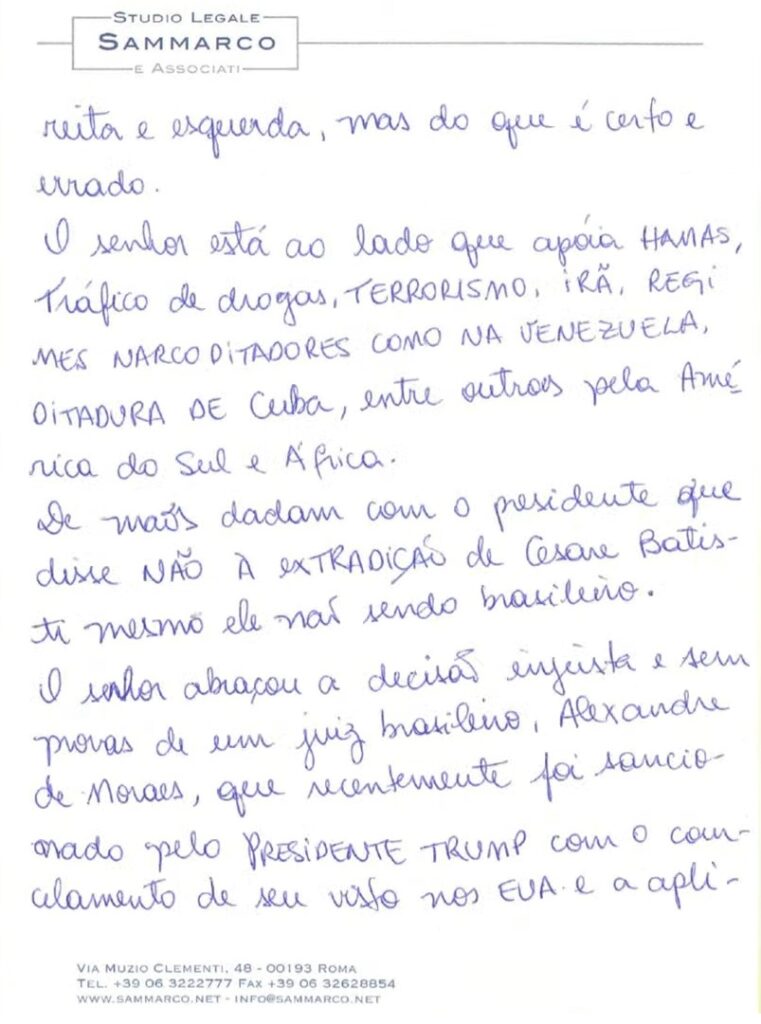 STUDIO LEGALE
SAMMARCO
E ASSOCIATI
reita e esquerda, mas do que é certo e
errado.
O senhor está ao lado que apóia HAMAS,
Tráfico de drogas, TERRORISMO, IRÃ, REGI
MES NARCODITADORES COMO NA VENEZUELA,
DITADURA DE Cuba, entre outros pela Amé-
rica do Sul e África.
De maõs dadam com o presidente que
disse NÃO À EXTRADIÇÃO de Cesare Batis-
ti mesmo ele naõ sendo brasileiro.
O senhor abraçou a decisão injusta e sem
provas de um juiz brasileiro, Alexandre
de Moraes, que recentemente foi sancio-
nado pelo PRESIDENTE TRUMP com o can-
celamento de seu visto nos EUA e a apli-
VIA MUZIO CLEMENTI, 48 - 00193 ROMA
TEL. +39 06 3222777 FAX +39 06 32628854
WWW.SAMMARCO.NET - INFO@SAMMARCO.NET